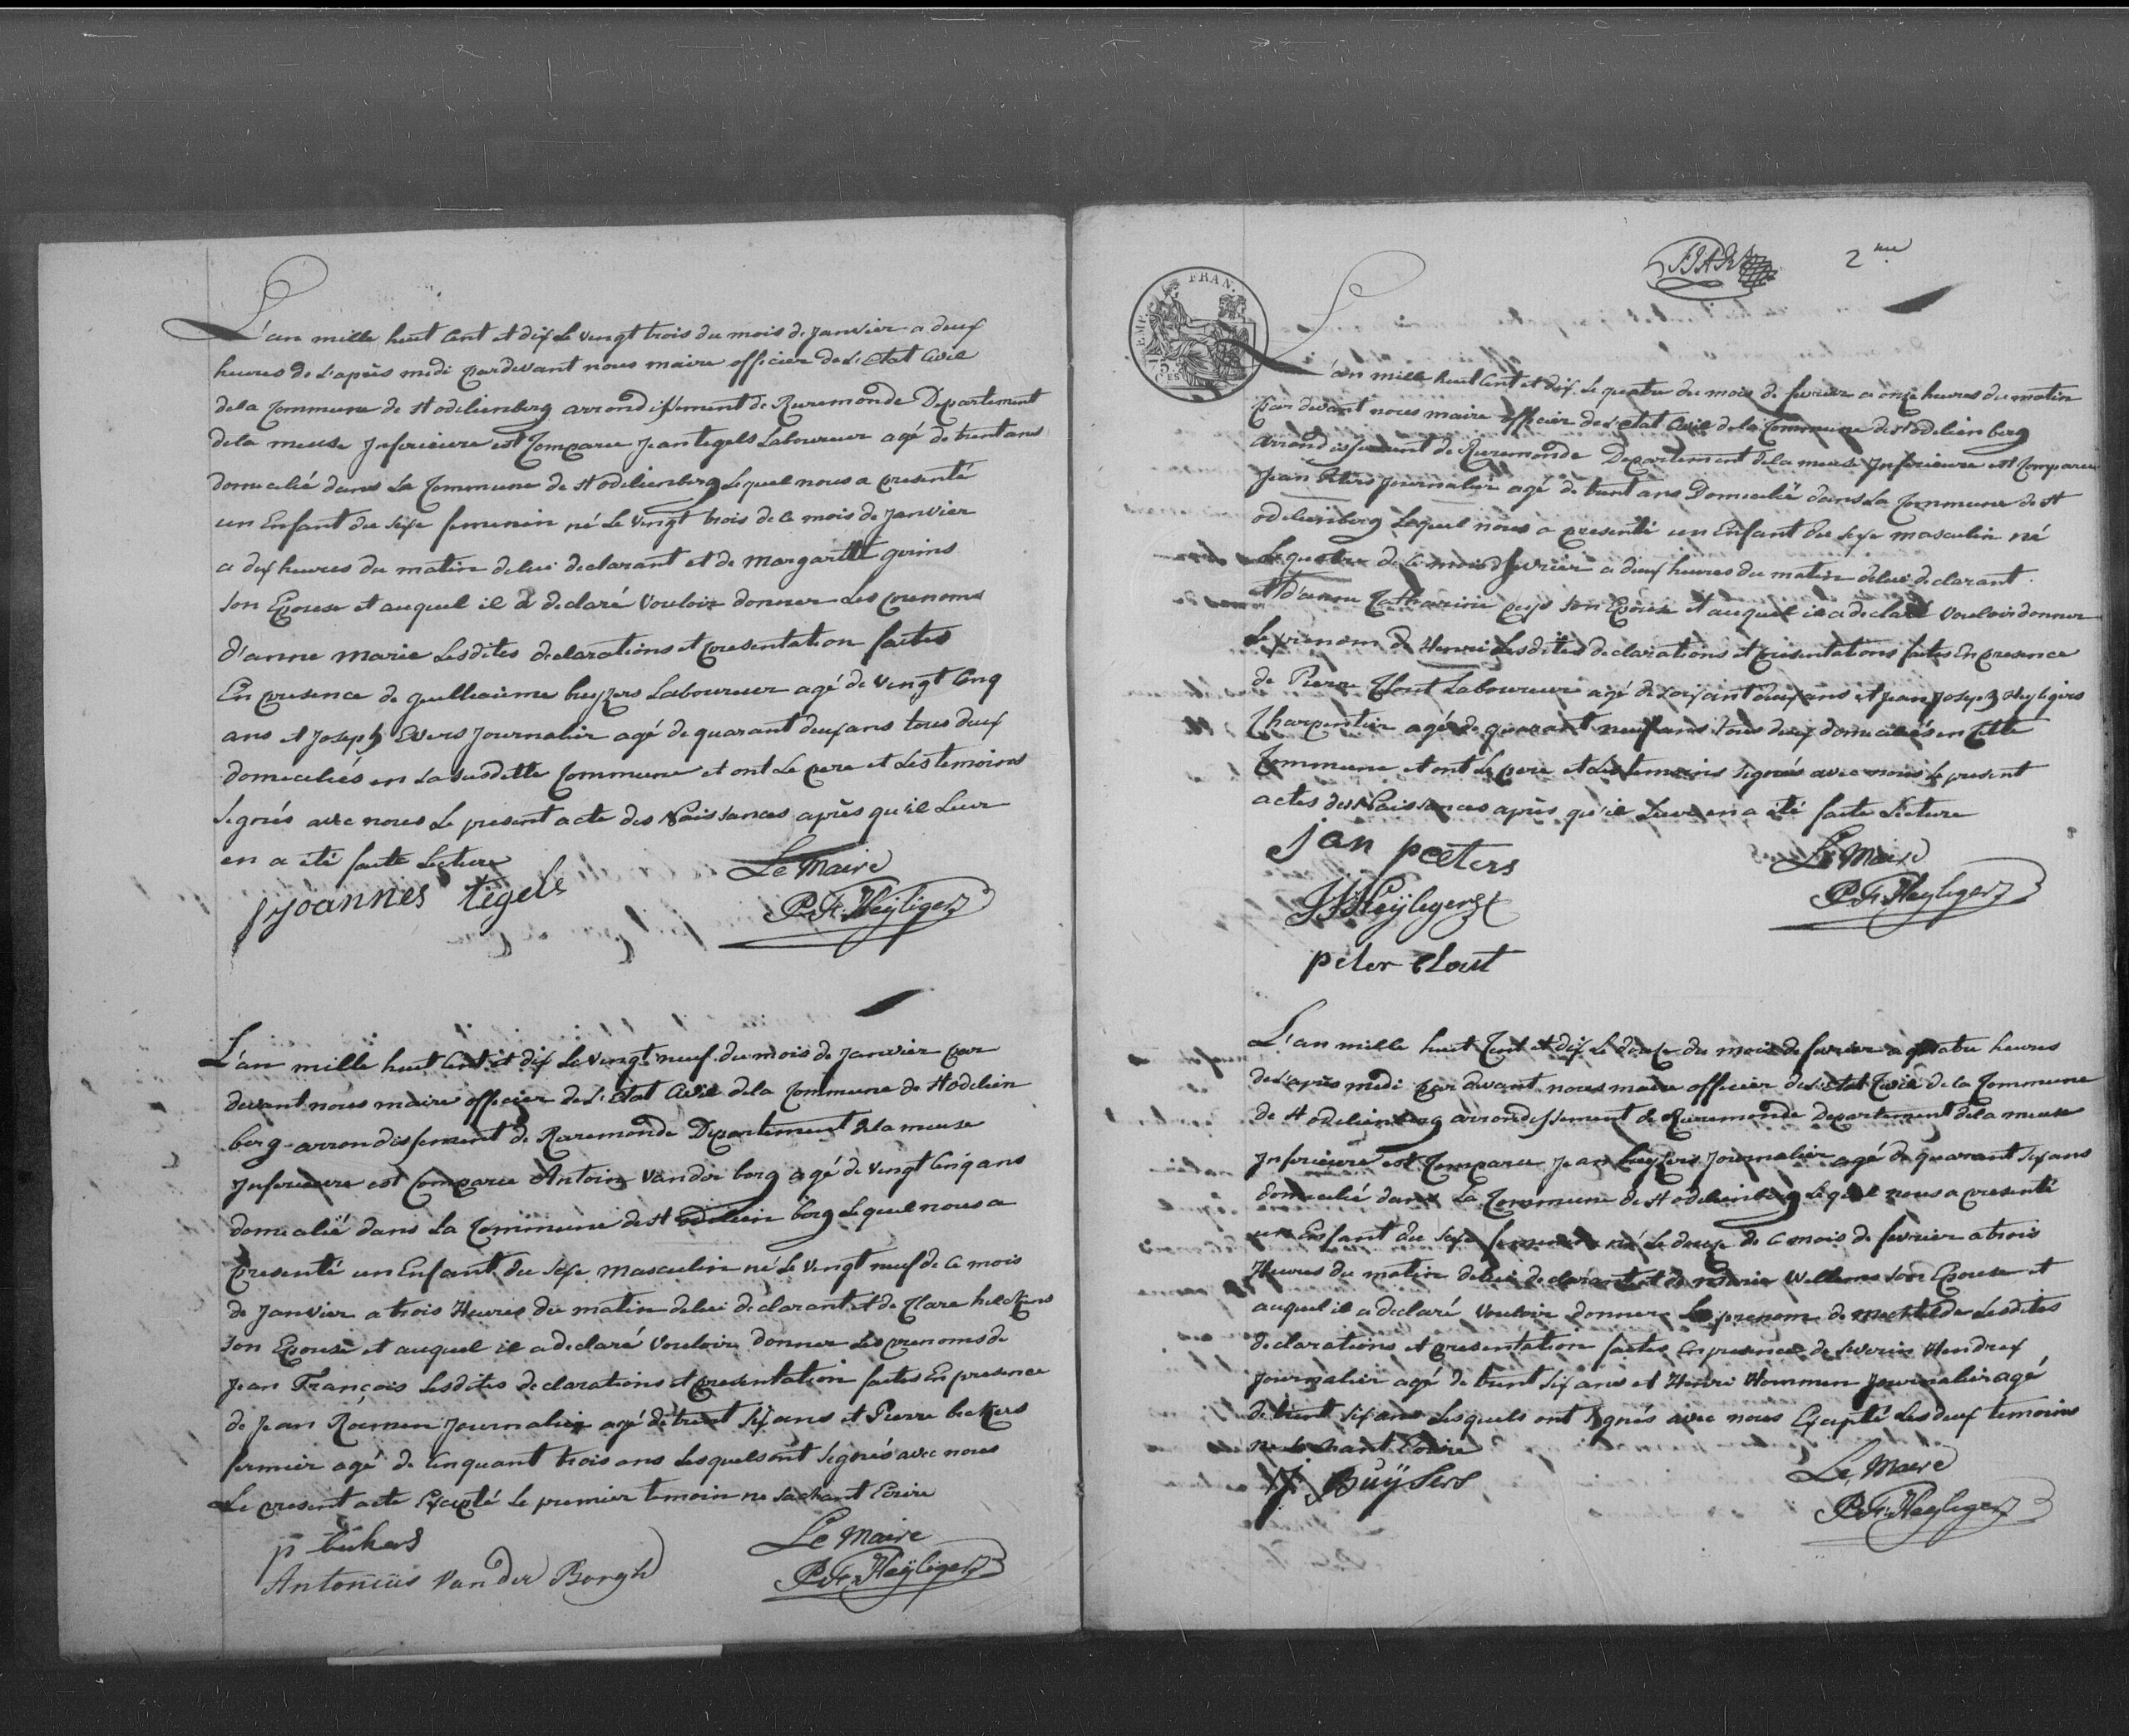 L'an mille huit Cent et dix le vingt trois du mois de Janvier a deux
heures de L'après midi pardevant nous maire officier de L'Etat Civil
de la Commune de St odelienberg arrondissement de Ruremonde Departement
de la meuse Inferieure est Comparu Jean tegels Laboureur agé de trent ans
domicilié dans La Commune de St odelienberg Lequel nous a presenté
un Enfant du sexe feminin né Le vingt trois de Ce mois de Janvier
a dix heures du matin de lui declarant et de Margarett
son Epouse et auquel il a declaré Vouloir donner Les prenoms
d'anne marie Lesdites declarations et presentation faites
En presence de guilliaume Laboureur agé de Vingt Cinq
ans et Joseph Evers Journalier agé de quarant deux ans tous deux
domiciliés en La susditte Commune et ont Le pere et Les temoins
signés avec nous Le present acte des Naissances après qu'il Leur
en a été faite Lecture
Le Maire
Joannes tegels
P. F. Heyligers
L'an mille huit Cent et dix Le vingt neuf du mois de Janvier par
devant nous maire officier de L'Etat Civil de la Commune de St odelien
berg arrondissement de Ruremonde Departement de la meuse
Inferieure est Comparu Antoin Vander borg agé de vingt Cinq ans
domicilié dans La Commune de St odelien berg Lequel nous a
presenté un Enfant du sexe masculin né Le vingt neuf de Ce mois
de Janvier a trois Heures du matin de lui declarant et de Clare
son Epouse et auquel il a declaré Vouloir donner Les prenoms de
Jean François Lesdites declarations et presentation faites En presence
de Jean Roemen Journalier agé de trent six ans et Pierre beckers
fermier agé de Cinquant trois ans Lesquels ont signés avec nous
Le present acte Excepté Le premier temoin ne sachant Ecrire
p beckers
Le Maire
Antonius Vander Borgh
P. F. Heyligers
2me
FRAN.
EMP.
75
CES
L'an mille huit Cent et dix Le quatre du mois de fevrier a onze heures du matin
par devant nous maire officier de L'etat Civil de la Commune de St odelienberg
Arrondissement de Ruremonde Departement de la meuse Inferieure est Comparu
Jean Peters Journalier agé de trent ans Domicilié dans La Commune de St
odelienberg Lequel nous a presenté un Enfant du sexe masculin né
Le quatre de Ce mois d fevrier a deux heures du matin de lui declarant
et d'anne Catharine son Epouse et auquel il a declaré Vouloir donner
Le prenom de Henri Lesdites declarations et presentations faites En presence
de Pierre Clout Laboureur agé de soixant deux ans et Jean Joseph Heyligers
Charpentier agé de quarant neuf ans tous deux domiciliés en Cette
Commune et ont Le pere et Les temoins signés avec nous Le present
actes des Naissances après qu'il Leur en a été faite Lecture
jan peeters
Le Maire
J J Heyligers
P. F. Heyligers
peter Clout
L'an mille huit Cent et dix Le douze du mois de fevrier a quatre heures
de L'après midi par devant nous maire officier de L'etat Civil de la Commune
de St odelienberg arrondissement de Ruremonde Departement de la meuse
Inferieure est Comparu Jean Journalier agé de quarant six ans
domicilié dans La Commune de St odelienberg Lequel nous a presenté
un Enfant du sexe feminin né Le douze de Ce mois de fevrier a trois
Heures du matin de lui declarant et de Marie Willems son Epouse et
auquel il a declaré Vouloir donner Le prenom de Mechtilde Lesdites
declarations et presentation faites En presence de Severin Hendrix
Journalier agé de trent six ans et Henri Hommen Journalier agé
de trent six ans Lesquels ont signés avec nous Excepté Les deux temoins
ne sachant Ecrire
Le Maire
J Buÿsers
P. F. Heyligers